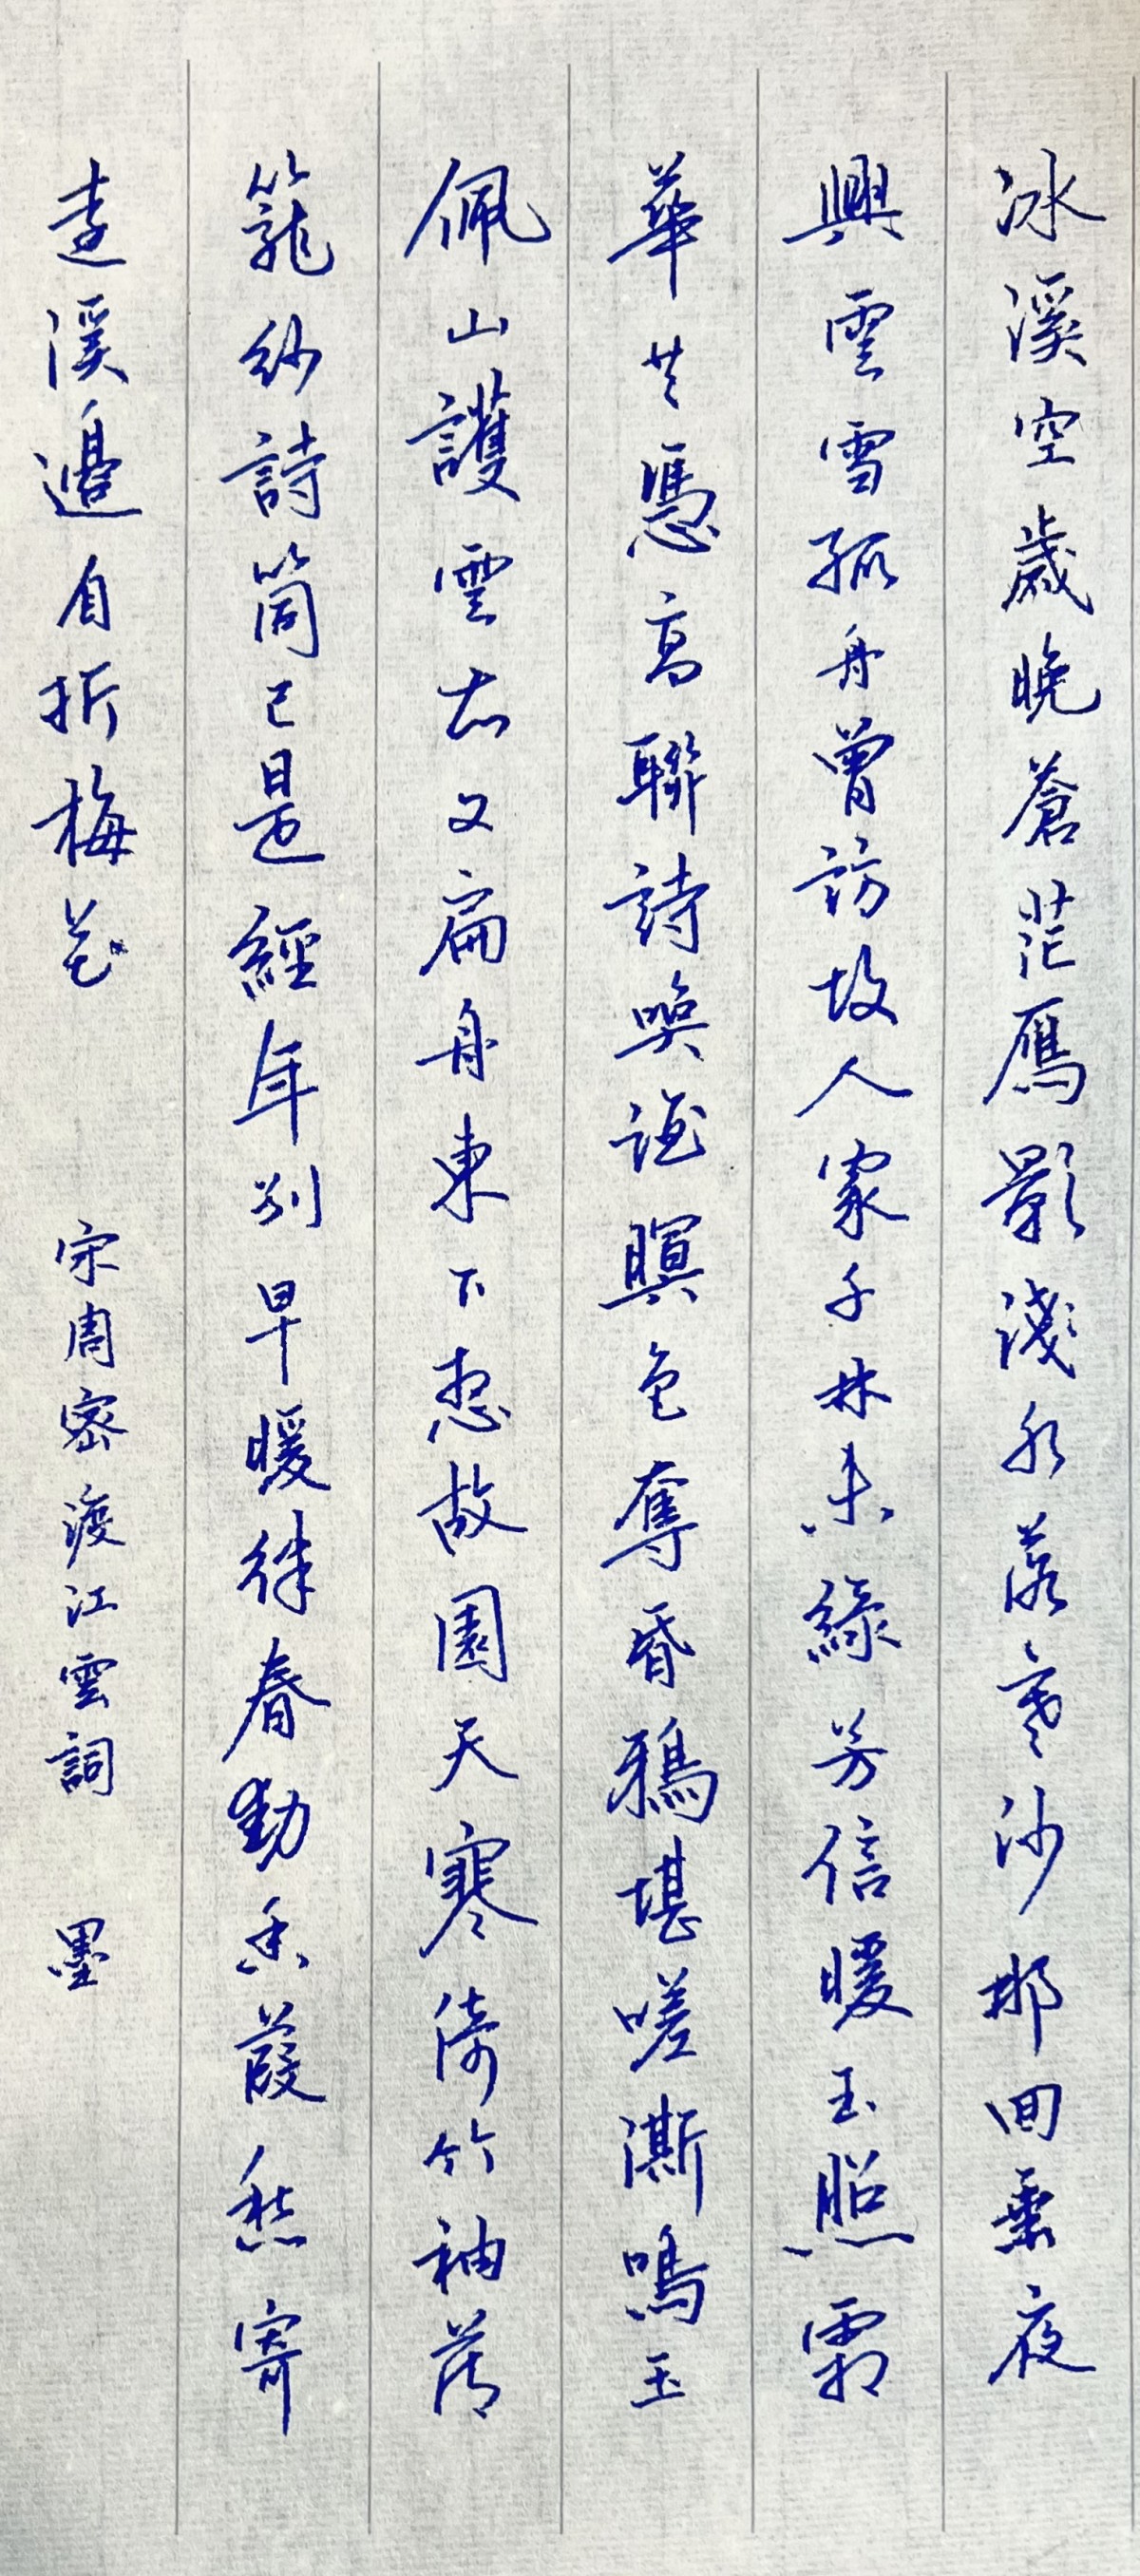 冰溪空歲晚蒼茫鴈影淺水落寒沙那回乘夜
興雲雪孤舟曾訪故人家千林未綠芳信暖玉照霜
華共憑高聯詩喚酒暝色奪昏鴉堪嗟澌鳴玉
佩山護雲衣又扁舟東下想故園天寒倚竹袖薄
籠紗詩筒已是經年別早暖律春動香葭愁寄
遠溪邊自折梅花
宋周密渡江雲詞 墨